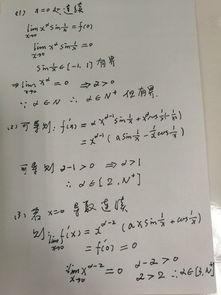 (1) x=0处连续
lim x→0 x^α sin 1/x = f(0)
lim x→0 x^α sin 1/x = 0
sin 1/x ∈ [-1, 1] 有界
⇒ lim x→0 x^α = 0 ⇒ α>0
∵ α∈N ∴ α∈N⁺
(2) 可导 则 f'(x) = αx^(α-1) sin 1/x
= x^(α-1) (α sin 1/x - 1/x cos 1/x)
可导 α-1>0 ⇒ α>1
∴ α∈[2, N⁺]
(3) 若 x=0 导数连续
则 lim x→0 f'(x) = x^(α-2) (αx sin 1/x + cos 1/x)
= f'(0) = 0
lim x→0 x^(α-2) = 0 α-2>0
α>2 ∴ α∈[3, N⁺]